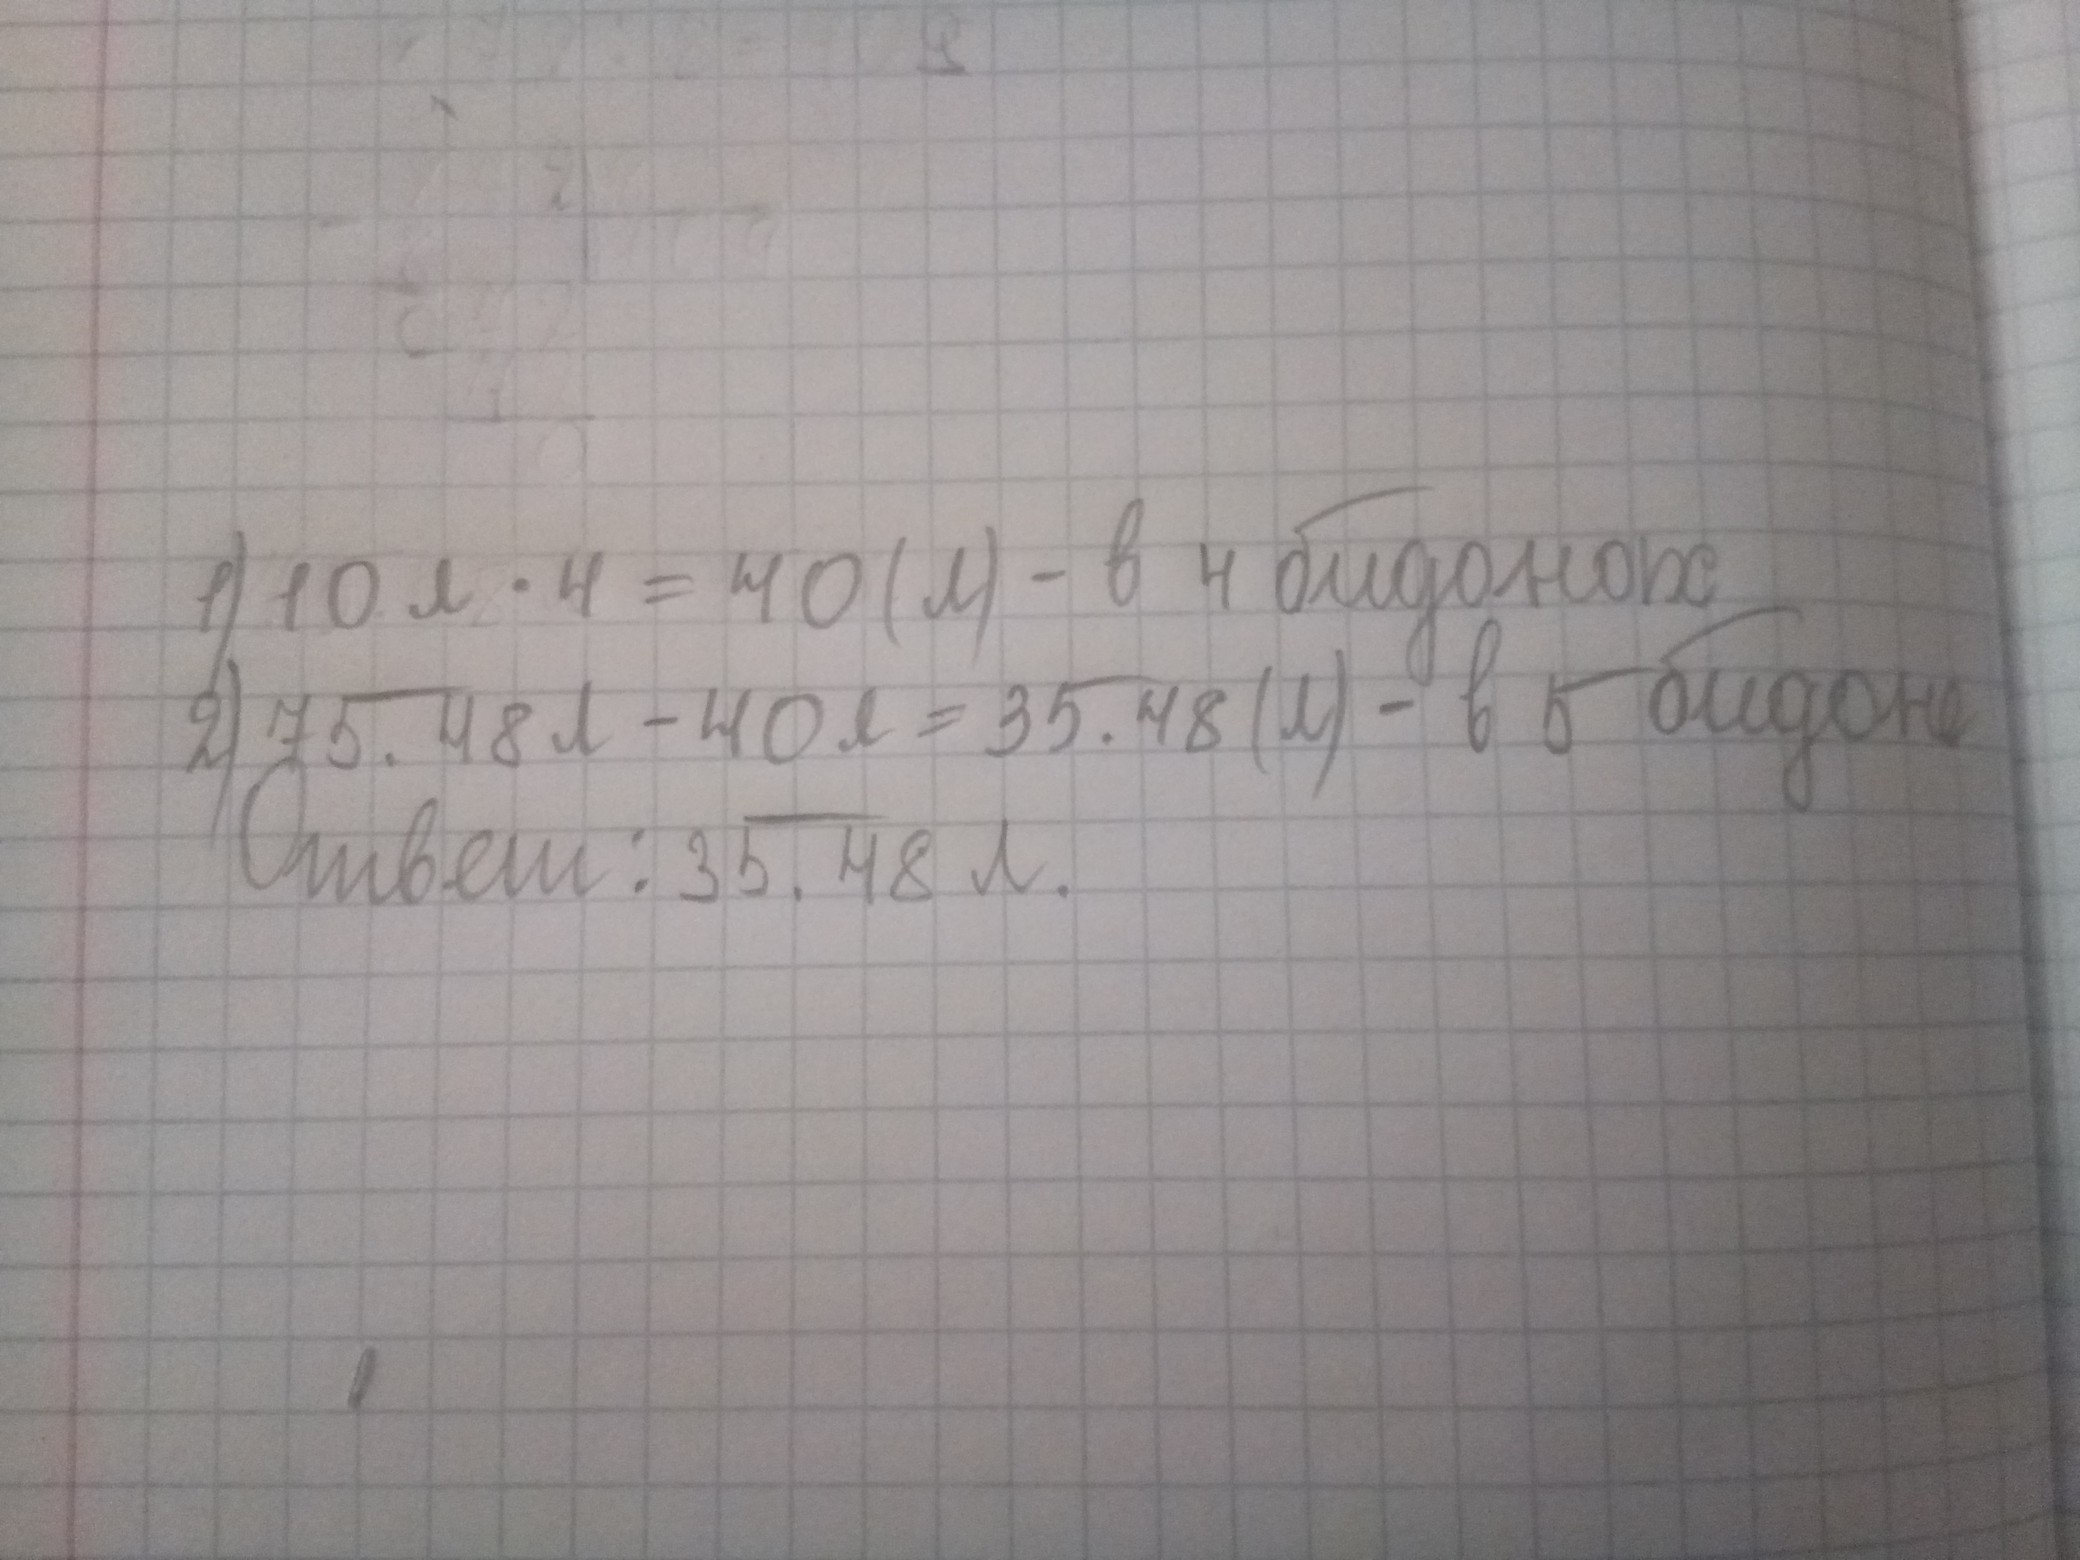 1) 10 л · 4 = 40 (л) - в 4 бидонах
2) 75.48 л - 40 л = 35.48 (л) - в 5 бидоне
Ответ: 35.48 л.